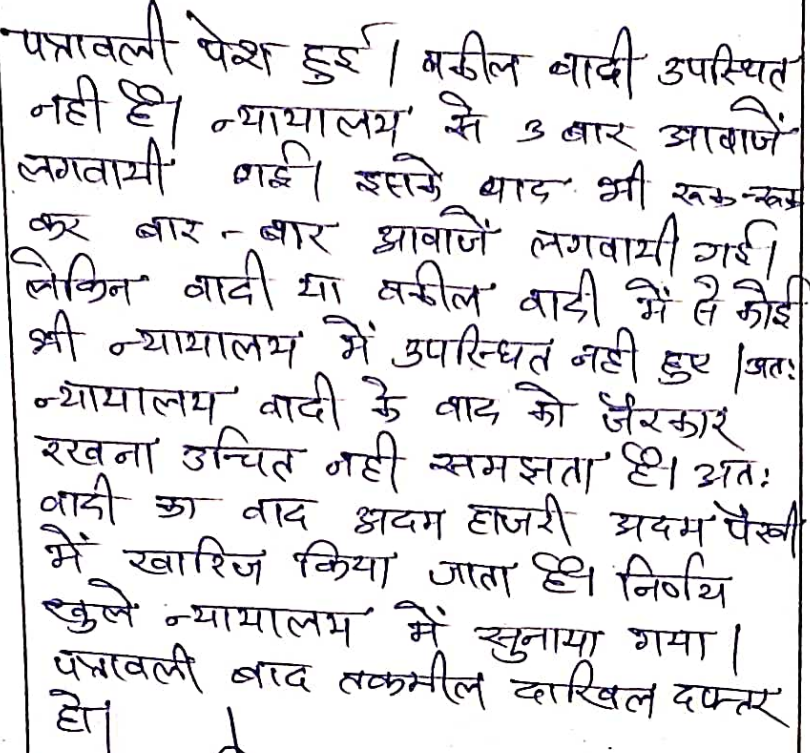 पत्रावली पेश हुई। वकील वादी उपस्थित
नही है। न्यायालय से 3 बार आवाजें
लगवायी गई। इसके बाद भी रूक-रूक
कर बार-बार आवाजें लगवायी गई।
लेकिन वादी या वकील वादी में से कोई
भी न्यायालय में उपस्थित नही हुए। अतः
न्यायालय वादी के वाद को जैरकार
रखना उचित नही समझता है। अतः
वादी का वाद अदम हाजरी अदम पैरवी
में खारिज किया जाता है। निर्णय
खुले न्यायालय में सुनाया गया।
पत्रावली बाद तकमील दाखिल दफ्तर
हो।